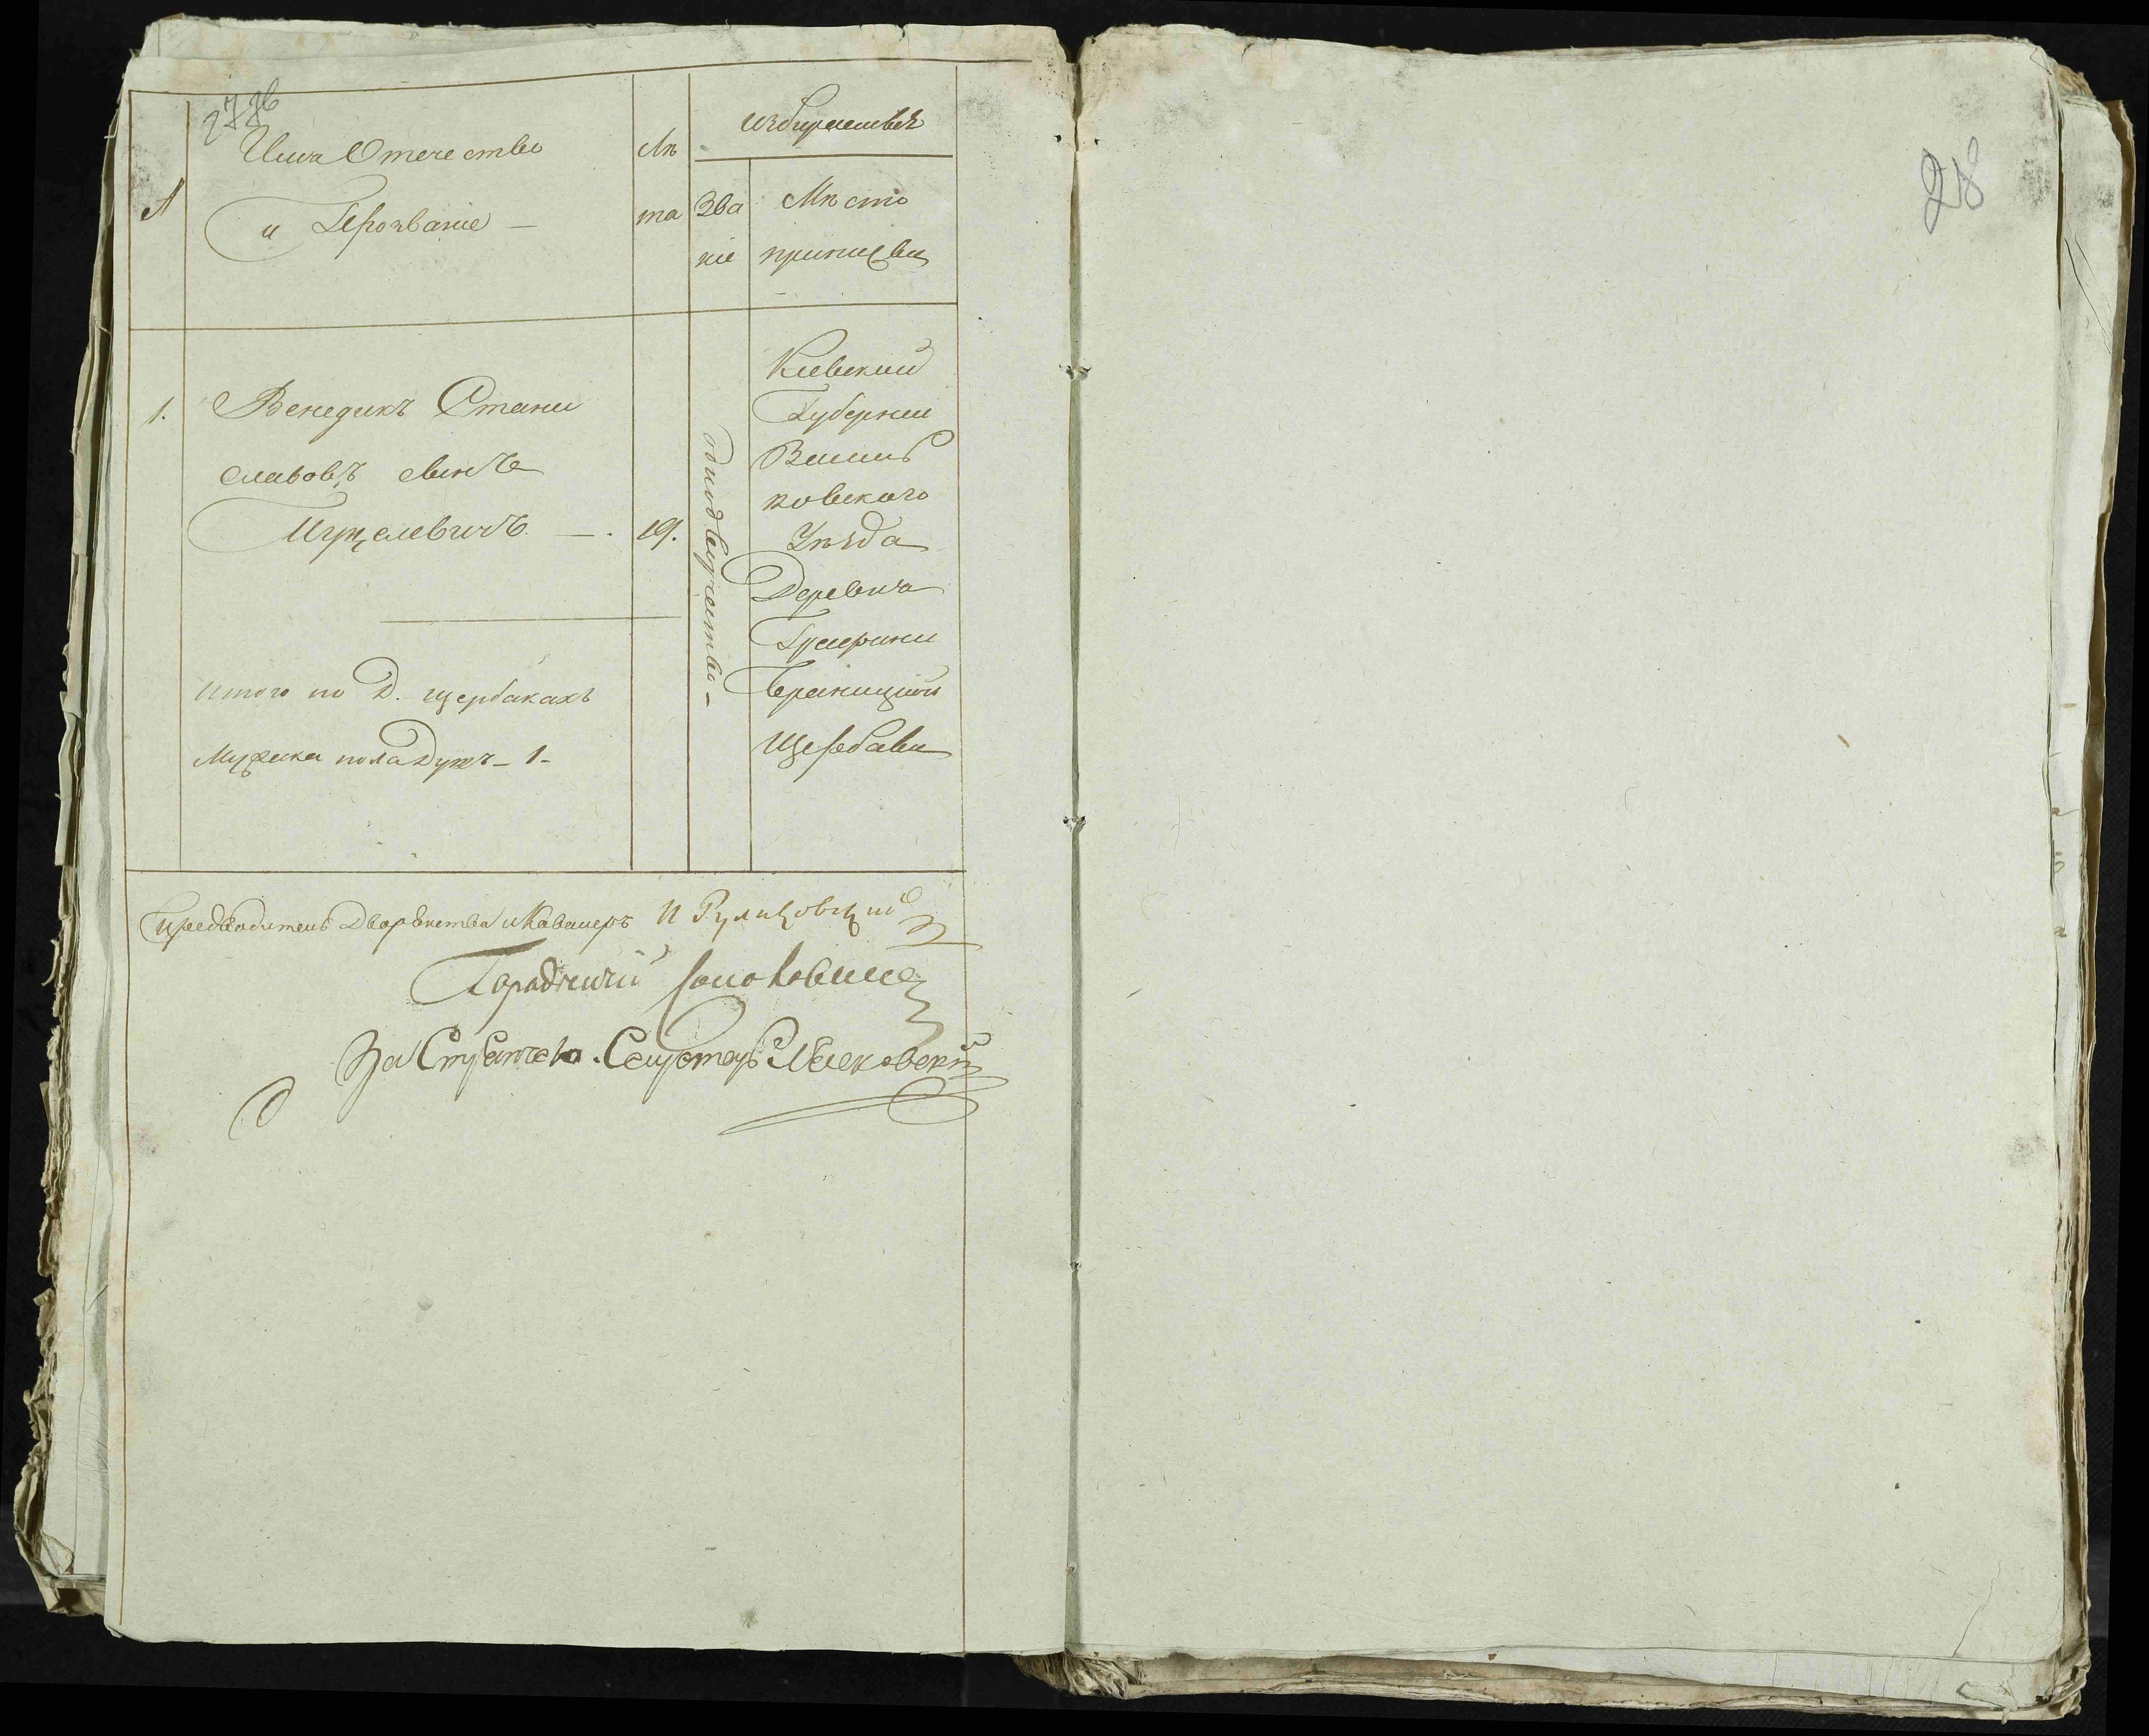 27 об
№
Имя Отечество
и Прозвание —
Лѣ
та
избирательѣ
Зва
ние
Мѣсто
приписки
1.
Бенедикъ Стани
славовъ сынъ
Шуцелевичъ — .
19.
однодворчество -
Киевский
Губернии
Василь
ковского
Уѣзда
Деревня
Графини
Браницкой
Щербаки
Итого по Д. Щербакахъ
Мужска пола Душъ - 1 -
Предводитель Дворянства и Кавалеръ И Руликовский
Городничий
За Стряпчего Секретарь
28